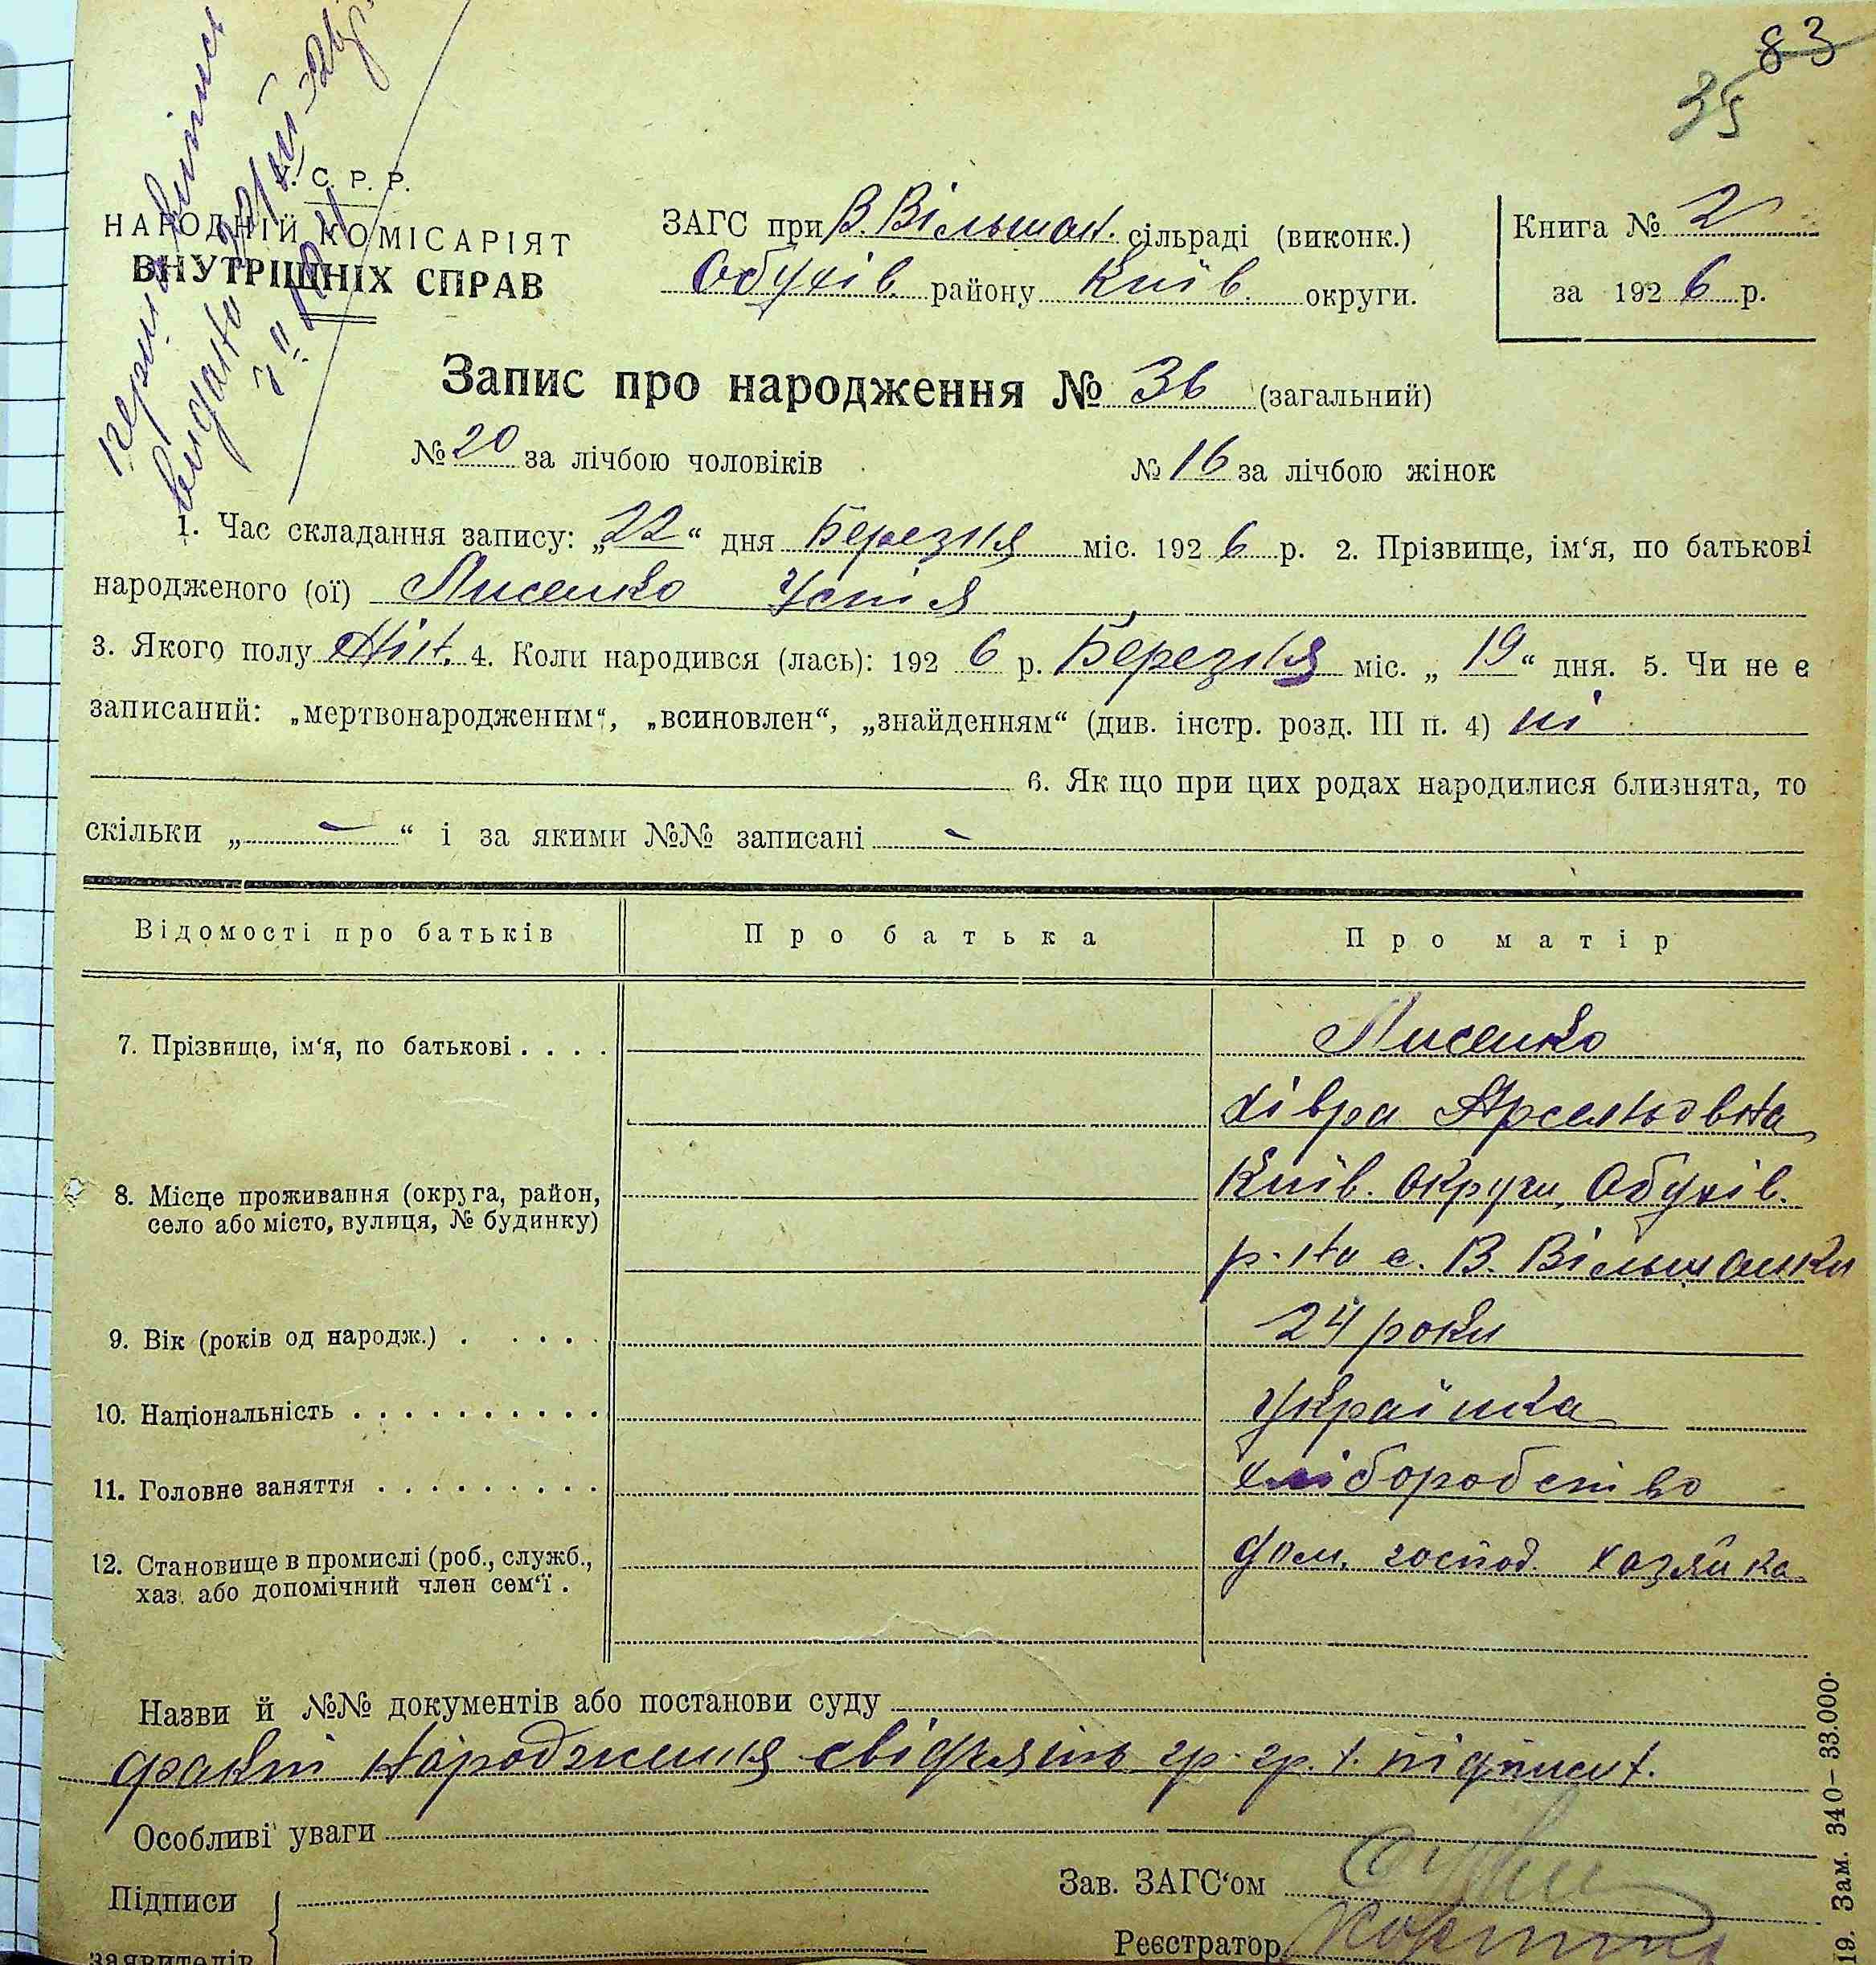 83
35
С. Р. Р.
НАРОДНІЙ КОМІСАРІЯТ
ВНУТРІШНІХ СПРАВ
ЗАГС при В. Вільшан. сільраді (виконк.)
Обухів. району Київ. округи.
Книга № 2
за 1926 р.
Запис про народження № 36 (загальний)
№ 20 за лічбою чоловіків № 16 за лічбою жінок
1. Час складання запису: „22“ дня Березня міс. 1926 р. 2. Прізвище, ім‘я, по батькові
народженого (ої) Лисенко Устія
3. Якого полу Жін. 4. Коли народився (лась): 1926 р. Березня міс. „19“ дня. 5. Чи не є
записаний: „мертвонародженим“, „всиновлен“, „знайденням“ (див. інстр. розд. III п. 4) ні
6. Як що при цих родах народилися близнята, то
скільки „ – “ і за якими №№ записані –
Відомості про батьків Про батька Про матір
7. Прізвище, ім‘я, по батькові . . . . Лисенко
Хівра Арсеньовна
8. Місце проживання (округа, район, Київ. округи, Обухів.
село або місто, вулиця, № будинку)
р-на с. В. Вільшанки
9. Вік (років од народж.) . . . . 24 роки
10. Національність . . . . . . . . . . українка
11. Головне заняття . . . . . . . . . хліборобство
12. Становище в промислі (роб., служб., дом. господ. хазяйка
хаз. або допомічний член сем‘ї .
Назви й №№ документів або постанови суду
факт народження свідчять гр. гр. н. підписн.
Особливі уваги
Підписи
заявителів
Зав. ЗАГС‘ом
Реєстратор
19. Зам. 340—33.000.